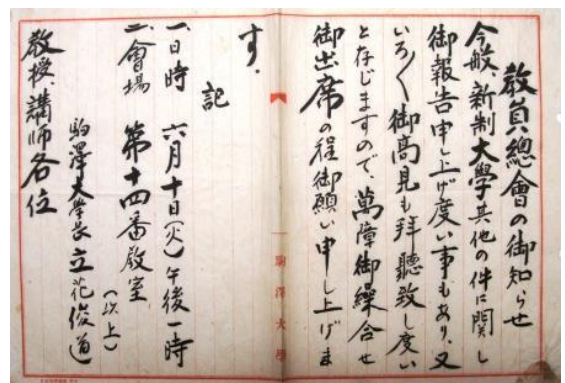 教員總會の御知らせ
今般、新制大學其他の件に関し
御報告申し上げ度い事もあり、又
いろ〱御高見も拝聽致し度い
と存じますので、萬障御繰合せ
御出席の程御願い申し上げま
す。
記
一、日時 六月十日(火)午後一時
二、會場 第十四番教室
(以上)
駒澤大學長 立花俊道
教授、講師各位
駒澤大學